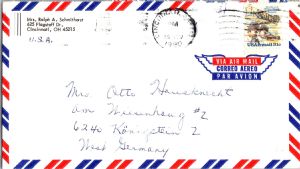 Mrs. Ralph A. Schmithorst
625 Flagstaff Dr.,
Cincinnati, OH 45215
U.S.A.
PM
1990
USAirmail
VIA AIR MAIL
CORREO AEREO
PAR AVION
Mrs. Otto Hausknecht
am Wiesenhang #2
6240 Königstein 2
West Germany